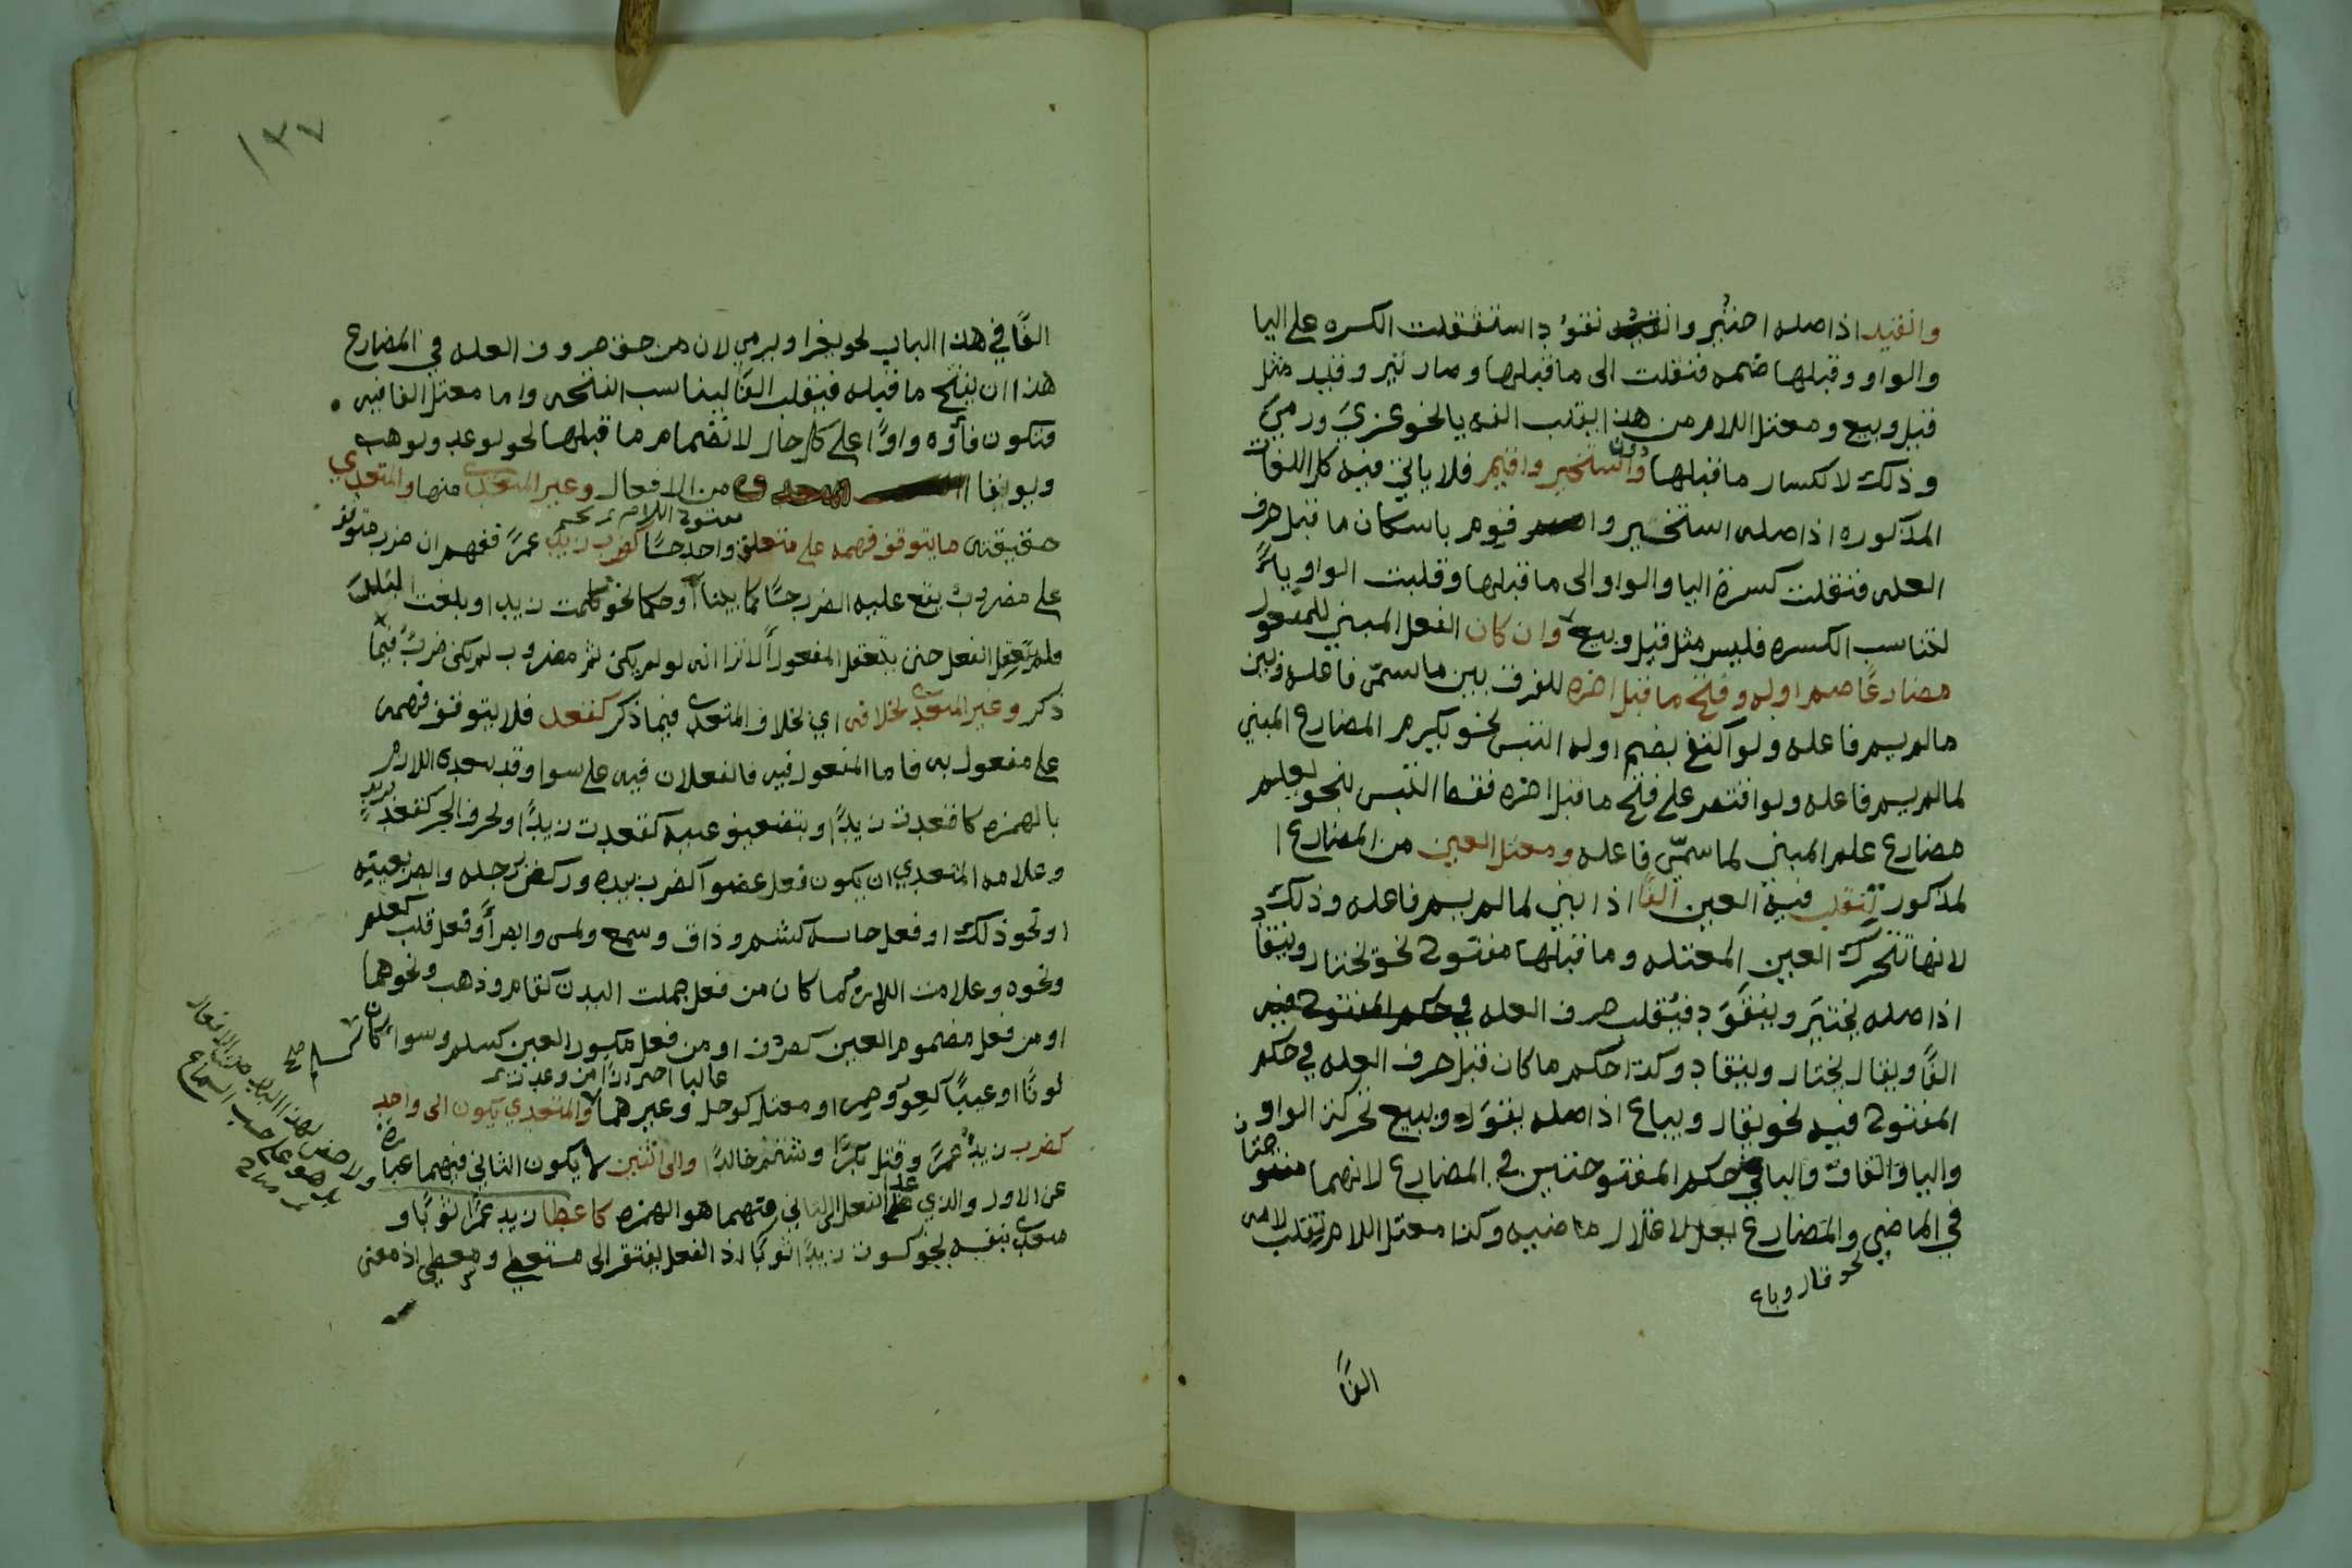 وانقيد اذ اصله اختير وانقود استثقلت الكسره على اليا
والواو وقبلها ضمه فنقلت الى ما قبلها وصار تير وقيد مثل
قيل وبيع ومعتل اللام من هذا يقلب الفه يا نحو غزي ورمي
وذلك لانكسار ما قبلها دون استخير واقيم فلا ياتي فيه كل اللغات
المذكوره اذ اصله استخير واقوم باسكان ما قبل حرف
العله فنقلت كسرة اليا والواو الى ما قبلها وقلبت الواو ياءً
لتناسب الكسره فليس مثل قيل وبيع وان كان الفعل المبني للمفعول
مضارعًا ضم اوله وفتح ما قبل اخره للفرق بين ما سمي فاعله وبين
ما لم يسم فاعله ولو اكتفي بضم اوله التبس نحو يكرم المضارع المبني
لما لم يسم فاعله ولو اقتصر على فتح ما قبل اخره فقط التبس بنحو يعلم
مضارع علم المبني لما سمي فاعله ومعتل العين من المضارع ا
لمذكور تنقلب فيه العين الفًا اذا بني لما لم يسم فاعله وذلك
لانها تتحرك العين المعتله وما قبلها مفتوح نحو يختار وينقاد
اذ اصله يختير وينقود فيقلب حرف العله في حكم المفتوح فيه
الفًا ويقال يختار وينقاد وكذا حكم ما كان قبل حرف العله في حكم
المفتوح فيه نحو يقال ويباع اذ اصله يقول ويبيع تحركت الواو
واليا والقاف والبا في حكم المفتوحتين في المضارع لانهما مفتوحتان
في الماضي والمضارع يعل لاعلال ماضيه وكذا معتل اللام تنقلب لامه
نحو قال وباع
الفًا
١٣٧
الفًا في هذا الباب نحو يغزا ويرمي لان من حق حروف العله في المضارع
هذا ان يفتح ما قبله فيقلب الفًا ليناسب الفتحه واما معتل الفا فيه
فتكون فاؤه واوًا على كل حال لانضمام ما قبلها نحو يوعد ويوهب
من الافعال وغير المتعدي منها والمتعدي
مفتوح اللام
حقيقته ما يتوقف فهمه على متعلق واحد حسًا كضرب زيد عمرًا ففهم ان ضرب متوقف
على مضروب يقع عليه الضرب حسًا كما بينا او حكما نحو كلمت زيدا وبلغت البلد
فلم تعقل الفعل حتى تعقل المفعول الا ترا انه لو لم يكن ثم مضروب لم يكن ضربٌ فيما
ذكر وغير المتعدي بخلافه اي بخلاف المتعدي فيما ذكر كقعد فلا يتوقف فهمه
على مفعول به فاما المفعول فيه فالفعلان فيه على سوا وقد يتعدى اللازم
بالهمزه كاقعدت زيدًا وبتضعيف عينه كقعدت زيدًا وبحرف الجر كقعد بزيدٍ
وعلامه المتعدي ان يكون فعل عضو كضرب بيده وركض برجله وابصر بعينه
او نحو ذلك او فعل حاسه كشم وذاق وسمع ولمس وابصر او فعل قلب كعلم
ونحوه وعلامت اللازم كما كان من فعل جملت البدن كقام وذهب ونحوهما
او من فعل مضموم العين كحرف او من فعل مكسور العين كسلم وسوا كان
غالبا احترازًا من وعد
لونًا او عيبًا كعور وحمر او معتل كوحل وغيرهما والمتعدي يكون الى واحد
كضرب زيدٌ عمرً وقتل بكرًا وشتم خالدًا والى اثنين يكون الثاني فيهما عبارة
عن الاول والذي عدا الفعل الى الثاني منهما هو الهمزه كاعطا زيد عمرًا ثوبًا و
متعدي بنفسه نحو كسوت زيدًا ثوبًا اذ الفعل يفتقر الى مستعطي ومعطي اذ معنى